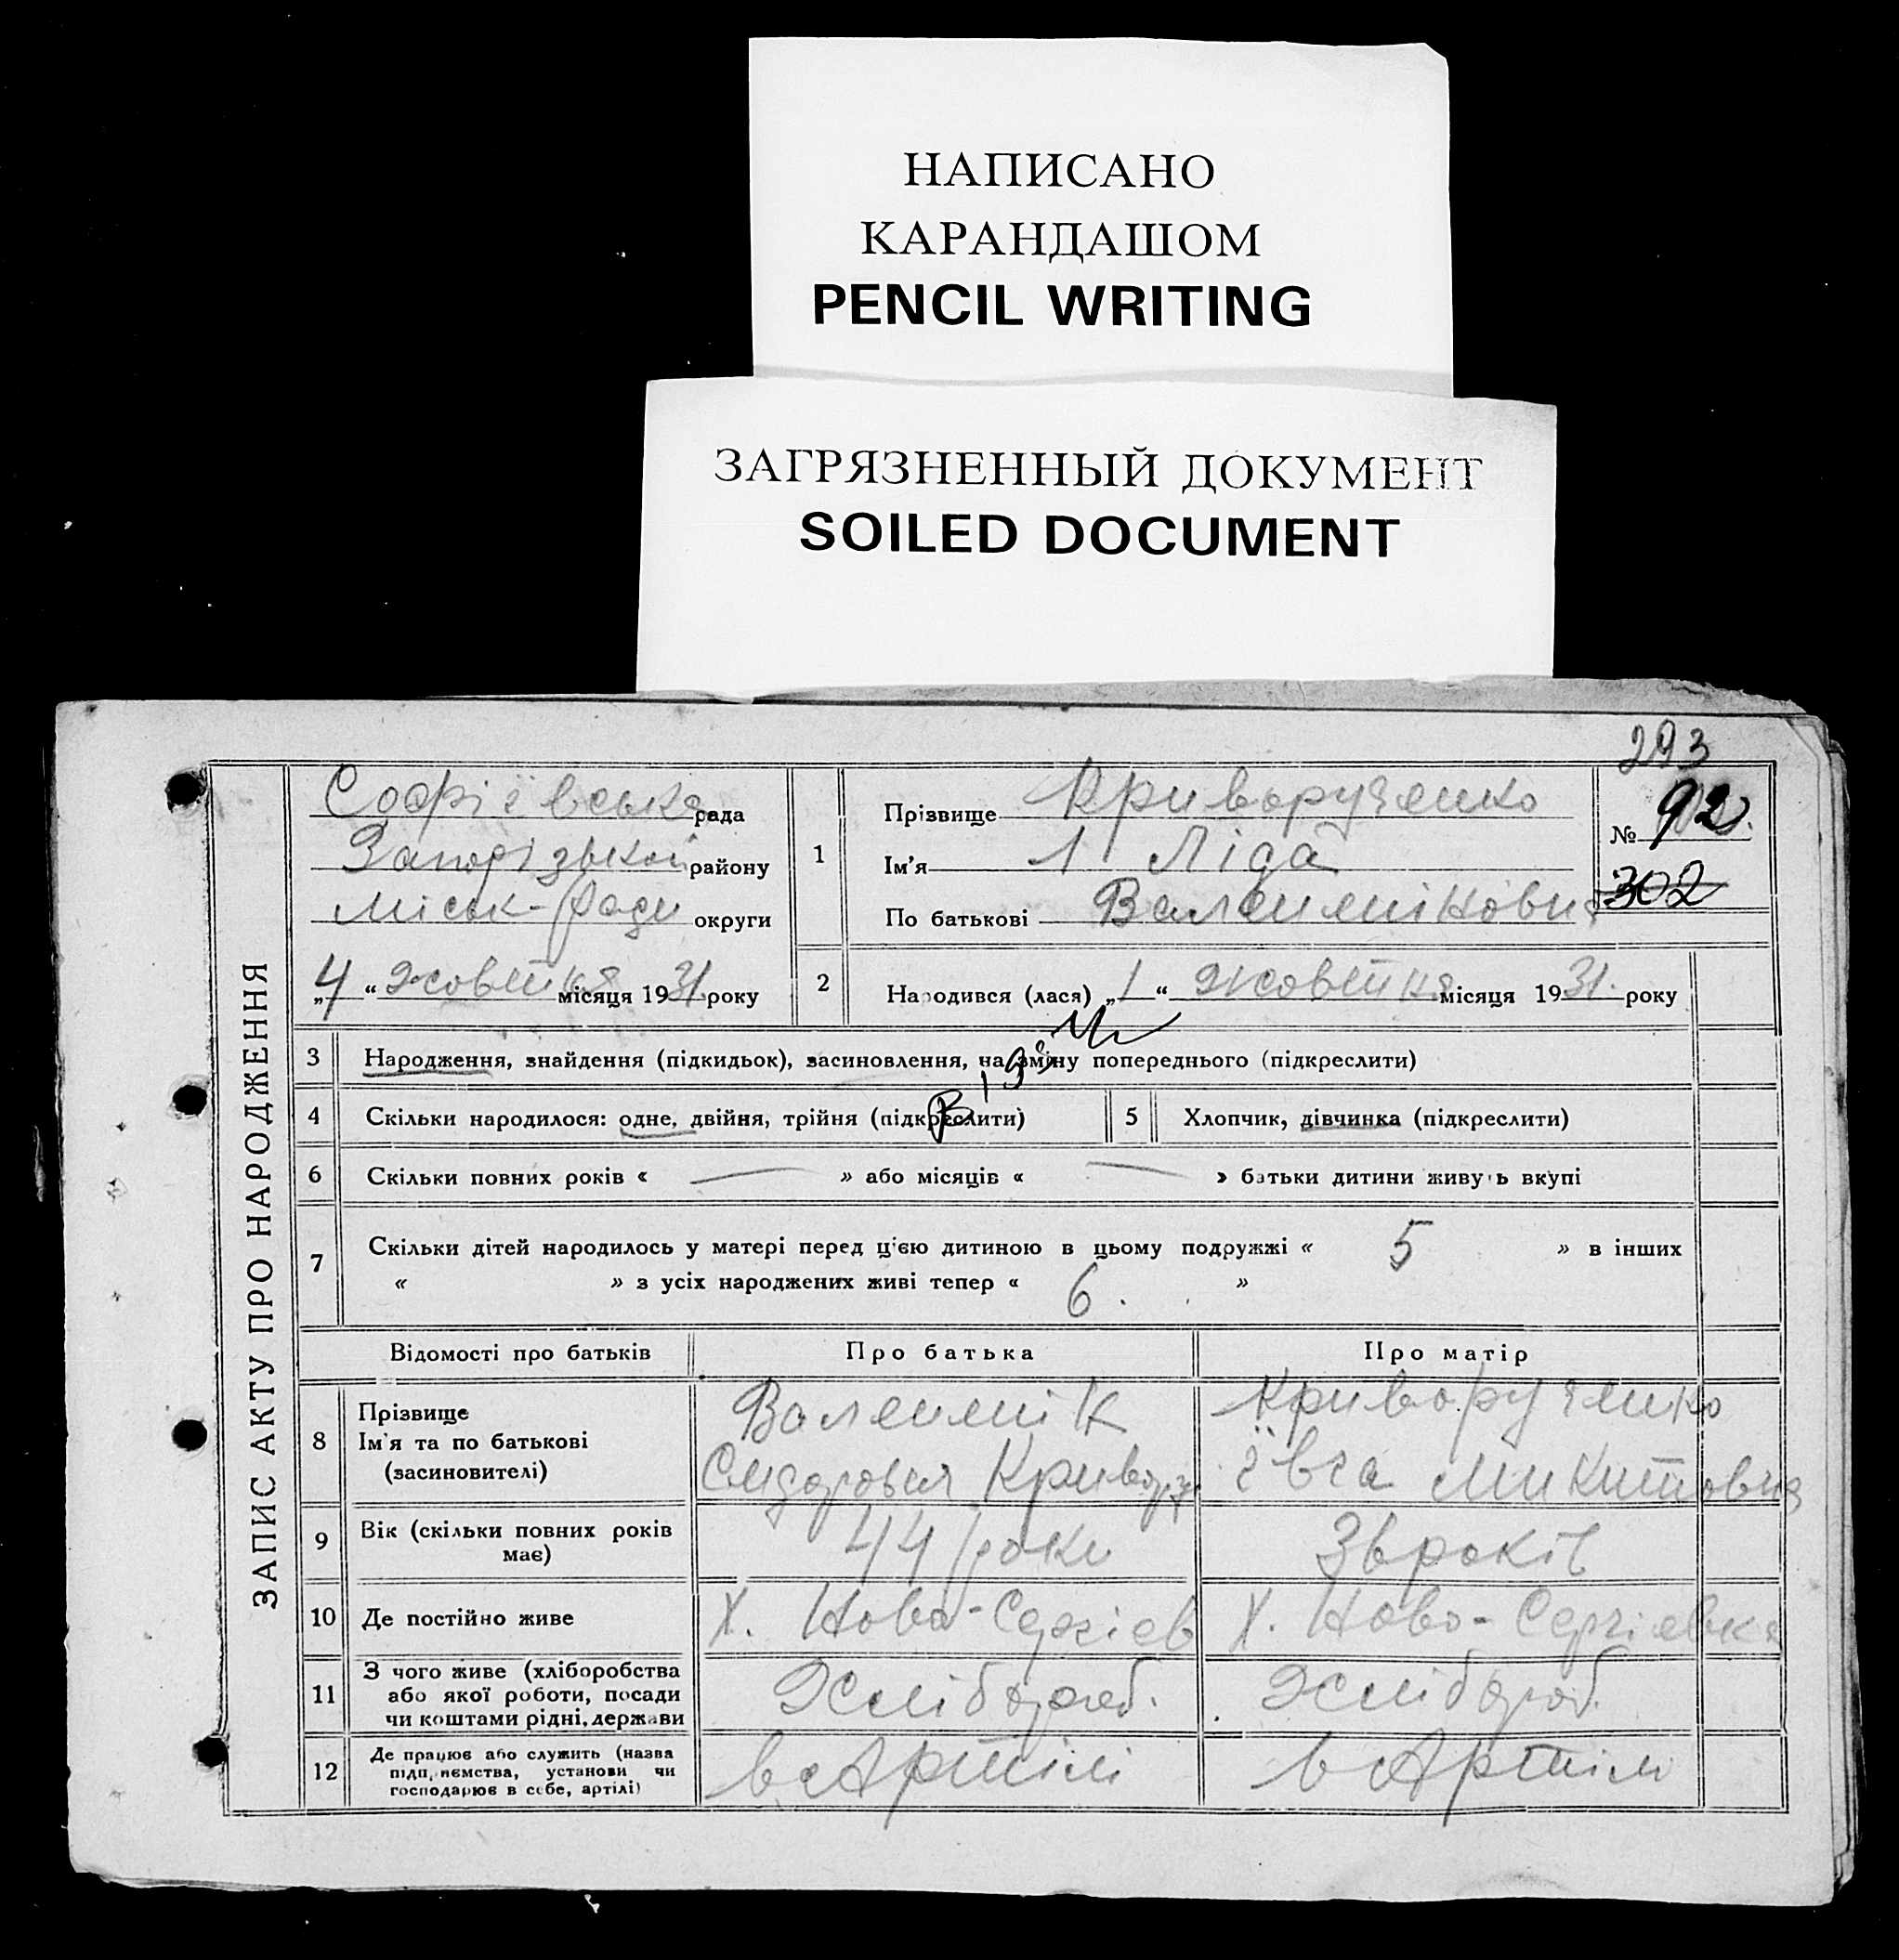 НАПИСАНО
КАРАНДАШОМ
PENCIL WRITING
ЗАГРЯЗНЕННЫЙ ДОКУМЕНТ
SOILED DOCUMENT
293
ЗАПИС АКТУ ПРО НАРОДЖЕННЯ
Софіївська рада
Запорізької району
Міськ-Ради округи
„4“ Жовтня місяця 1931 року
1
Прізвище Криворученко
Ім'я 1 Ліда
По батькові Валентіновна
№ 92
302
2
Народився (лася) „1“ Жовтня місяця 1931. року
3 Народження, знайдення (підкидьок), засиновлення, на зміну попереднього (підкреслити)
4 Скільки народилося: одне, двійня, трійня (підкреслити)
5 Хлопчик, дівчинка (підкреслити)
6 Скільки повних років « — » або місяців « — » батьки дитини живуть вкупі
7 Скільки дітей народилось у матері перед цією дитиною в цьому подружжі « 5 » в інших
« » з усіх народжених живі тепер « 6. »
Відомості про батьків Про батька Про матір
8 Прізвище
Ім'я та по батькові
(засиновителі)
Валентік
Сидорович Кривор.
Криворученко
Ївга Микитовна
9 Вік (скільки повних років
має)
44 роки
36 років
10 Де постійно живе
Х. Ново-Сергіев
Х. Ново-Сергіевка
11 З чого живе (хліборобства
або якої роботи, посади
чи коштами рідні, держави
Хлібороб.
Хлібороб.
12 Де працює або служить (назва
підприємства, установи чи
господарює в себе, артілі)
в Артілі
в Артілі